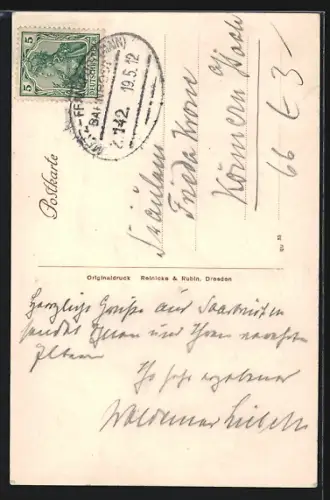 5
5
19.5.12
Z.142.
BAHNPOST
Postkarte
Fräulein
Frieda Krone
Könnern a/Saale
66 E 3
Originaldruck Reinicke & Rubin, Dresden
Herzliche Grüße aus Saarbrücken
sendet Ihnen und Ihren
Eltern
Ihr sehr ergebener
Waldemar